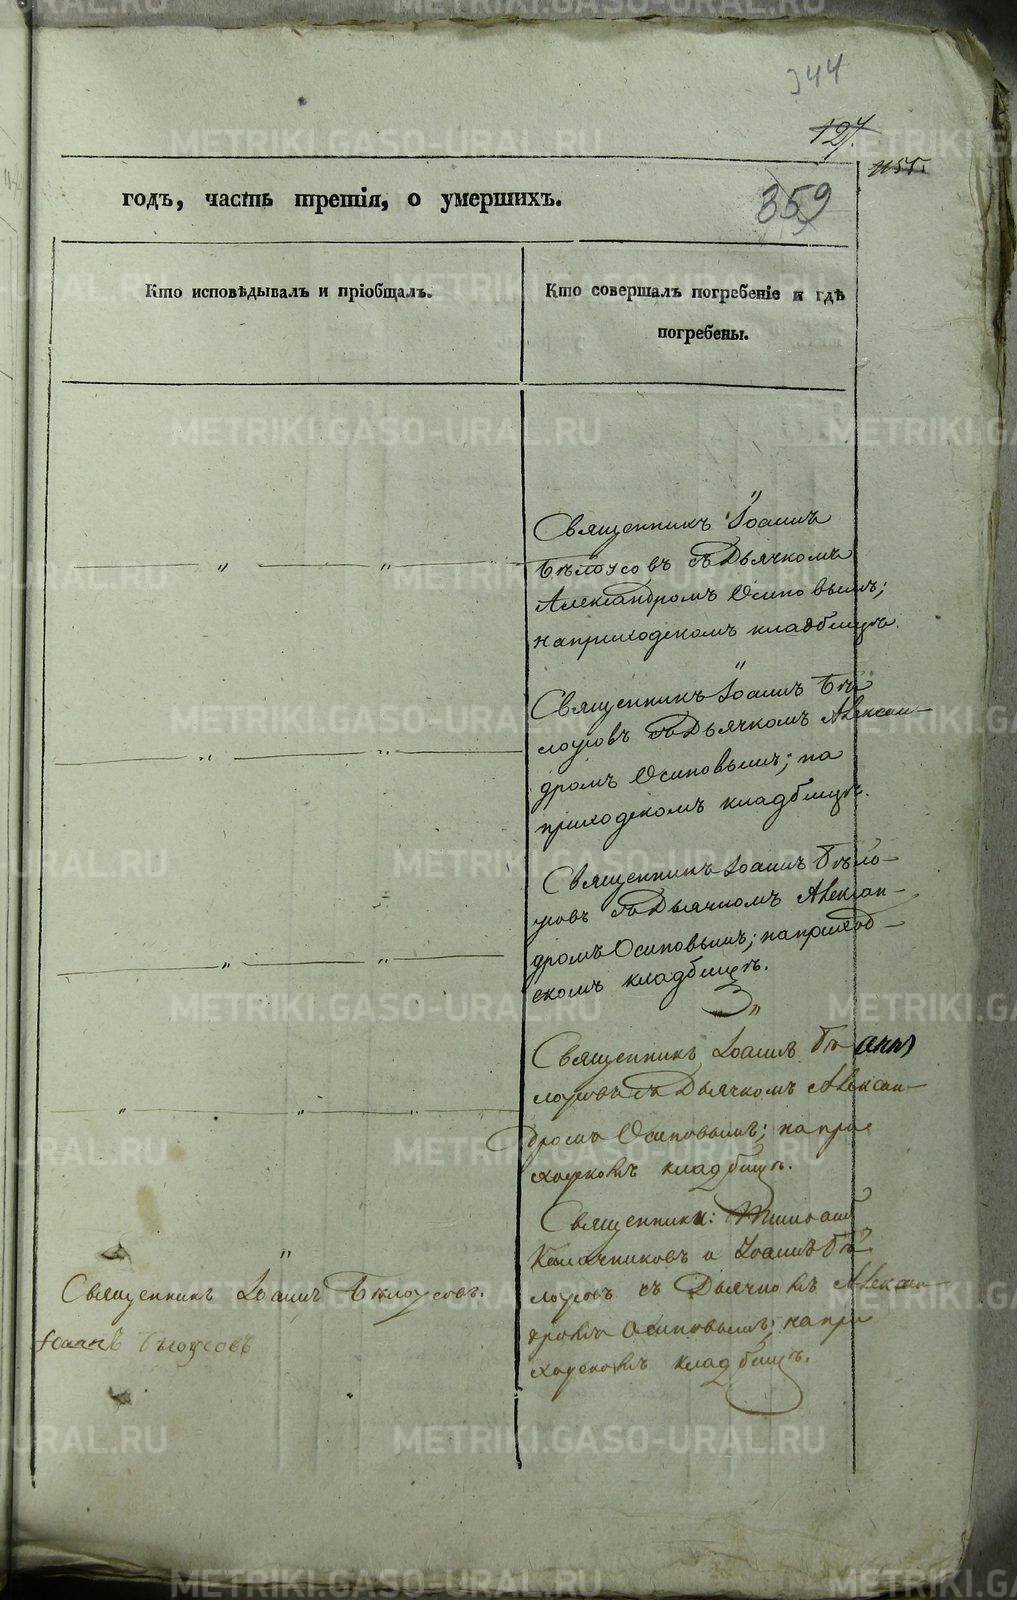 344
127.
1155.
359
годъ, часть третія, о умершихъ.
Кто исповѣдывалъ и пріобщалъ.
Кто совершалъ погребеніе и гдѣ
погребены.
Священникъ Іоаннъ
Бѣлоусовъ съ Дьячкомъ
Александромъ Осиповымъ;
на приходскомъ кладбищѣ.
Священникъ Іоаннъ Бѣ
лоусовъ съ Дьячкомъ Алексан-
дромъ Осиповымъ; на
приходскомъ кладбищѣ.
Священникъ Іоаннъ Бѣло-
усовъ съ Дьячкомъ Алексан-
дромъ Осиповымъ; на приход-
скомъ кладбищѣ.
Священникъ Іоаннъ Бѣ
лоусовъ съ Дьячкомъ Алексан-
дромъ Осиповымъ; на при
ходскомъ кладбищѣ.
Священники:
Калачниковъ и Іоаннъ Бѣ
лоусовъ съ Дьячкомъ Алексан
дромъ Осиповымъ; на при
ходскомъ кладбищѣ.
Священникъ Іоаннъ Бѣлоусовъ.
Іоаннъ Бѣлоусовъ
METRIKI.GASO-URAL.RU